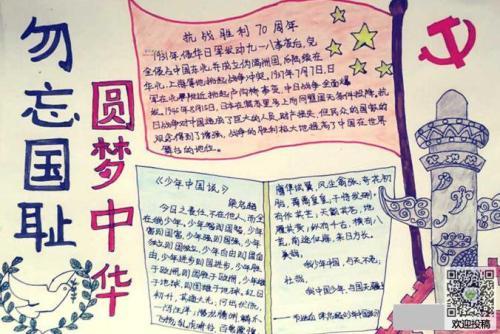 勿忘国耻
圆梦中华
抗战胜利70周年
1931年,侵华日军发动九一八事变后,完
全侵占中国东北,并成立伪满洲国,后陆续在
华北、上海等地挑起战争冲突,1937年7月7日,日
军在北平附近挑起卢沟桥事变,中日战争全面爆
发,1945年8月15日,日本在 向同盟国无条件投降,抗
日战争对中国造成了巨大的人员、财产损失,但民众的国家的
观念得到了增强,战争的胜利极大地提高了中国在世界
舞台的地位。
《少年中国说》 梁启超
今日之责任,不在他人,而全
在我少年。少年智则国智,少年
富则国富,少年强则国强,少年
独立则国独立,少年自由则国自
由,少年进步则国进步,少年胜
于欧洲,则国胜于欧洲,少年雄
于地球,则国雄于地球。红日
初升,其道大光,河出伏流,
一泻汪洋,潜龙腾渊,鳞爪
飞扬,乳虎啸谷,百兽震惶
鹰隼试翼,风尘翕张,奇花初
胎,矞矞皇皇,干将发硎,
有作其芒,天戴其苍,地
履其黄,纵有千古,横有八
荒,前途似海,来日方长。
美哉,
我少年中国,与天不老,
壮哉,
我中国少年,与国无疆!
欢迎投稿